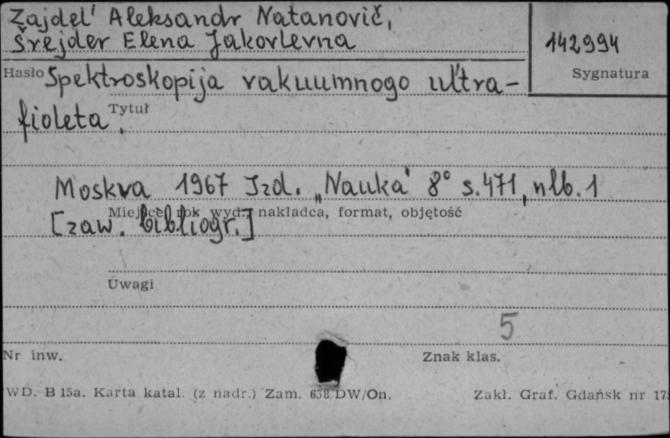 Zajdel' Aleksandr Natanovič,
Šrejder Elena Jakovlevna
142994
Hasło Spektroskopija vakuumnogo ul'tra-
Sygnatura
fioleta. Tytuł
Moskva 1967 Izd. „Nauka" 8° s. 471, nlb. 1
Miejsce, rok wyd., nakładca, format, objętość
[zaw. bibliogr.]
Uwagi
5
Nr inw. Znak klas.
WD. B 15a. Karta katal. (z nadr.) Zam. 638 DW/On. Zakł. Graf. Gdańsk nr